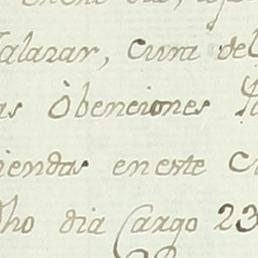 alazar, cura del
as Obenciones
iendas en este
ho dia Cargo 23